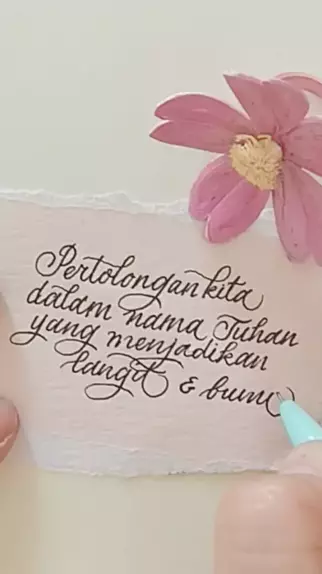 Pertolongan kita
dalam nama Tuhan
yang menjadikan
langit & bumi